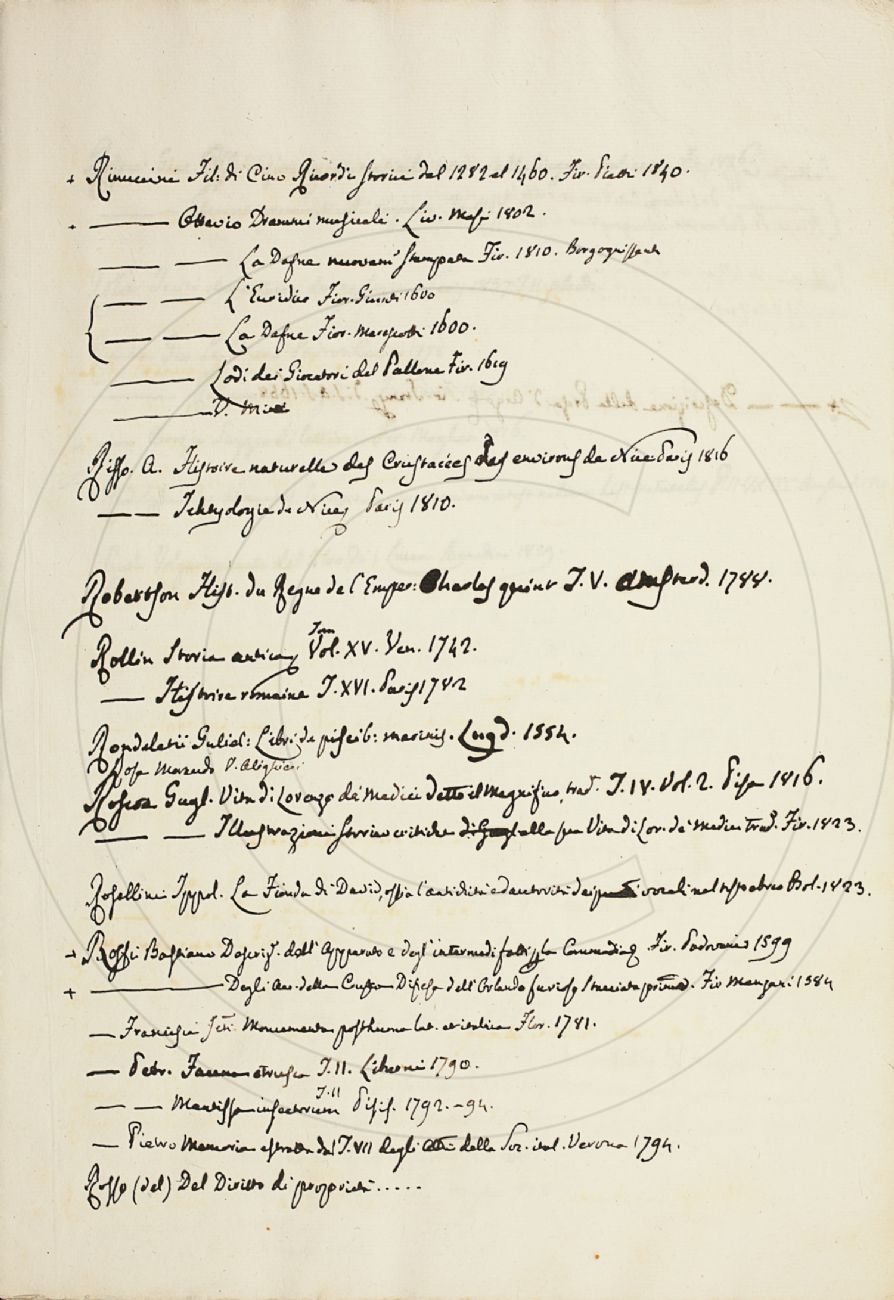 + Rinuccini Fil: di Cino Ricordi storici dal 1282 al 1460. Fir. Piatti 1840.
. —— Ottavio Drammi musicali. Liv. Masi 1802.
—— —— La Dafne nuovam. stampata Fir. 1810. Borgognissanti
—— —— L'Euridice Fior. Giunti 1600
—— —— La Dafne Fior. Marescotti 1600.
—— Lodi dei Giocatori del Pallone Fir. 1619
—— V.
Risso. A. Histoire naturelle des Crustacées des environs de Nice Paris 1816
— — Ichtyologie de Nice, Paris 1810.
Robertson Hist. du Regne de l'Emper: Charles quint T. V. Amsterd. 1788.
Rollin Storia antica Tom Vol. XV. Ven. 1742.
—— Histoire romaine T. XVI. Paris 1782
Rondeletii Guliel: Libri de piscib: marinis. Lugd. 1554.
Rosa Morando V. Alighieri
Roscoe Gugl. Vita di Lorenzo de' Medici detto il Magnifico, trad. T. IV. Vol. 2. Pisa 1816.
—— —— Illustrazioni storico critiche alla sua Vita di Lor. de' Medici trad. Fir. 1823.
Rosellini Ippol. La Fionda di David, ossia l'antichità ed autorità dei vocali nel testo ebreo Bol. 1823.
+ Rossi Bastiano Descriz. dell' Apparato e degl' intermedi fatti per la Commedia Fir. Padovani 1599
+ —— Degli Acc. della Crusca Difesa dell' Orlando furioso Stacciata prima. Fir Manzani 1584
— Francisci Monumenta posthuma Flor. 1781.
— Petr. Fauna etrusca T. II. Liburni 1790.
— — Mantissa insectorum T. II Pisis. 1792.-94.
— Pietro Memoria estratta dal T. VII degli Atti della Soc. ital. Verona 1794.
Rosso (del) Del Diritto di proprietà .....